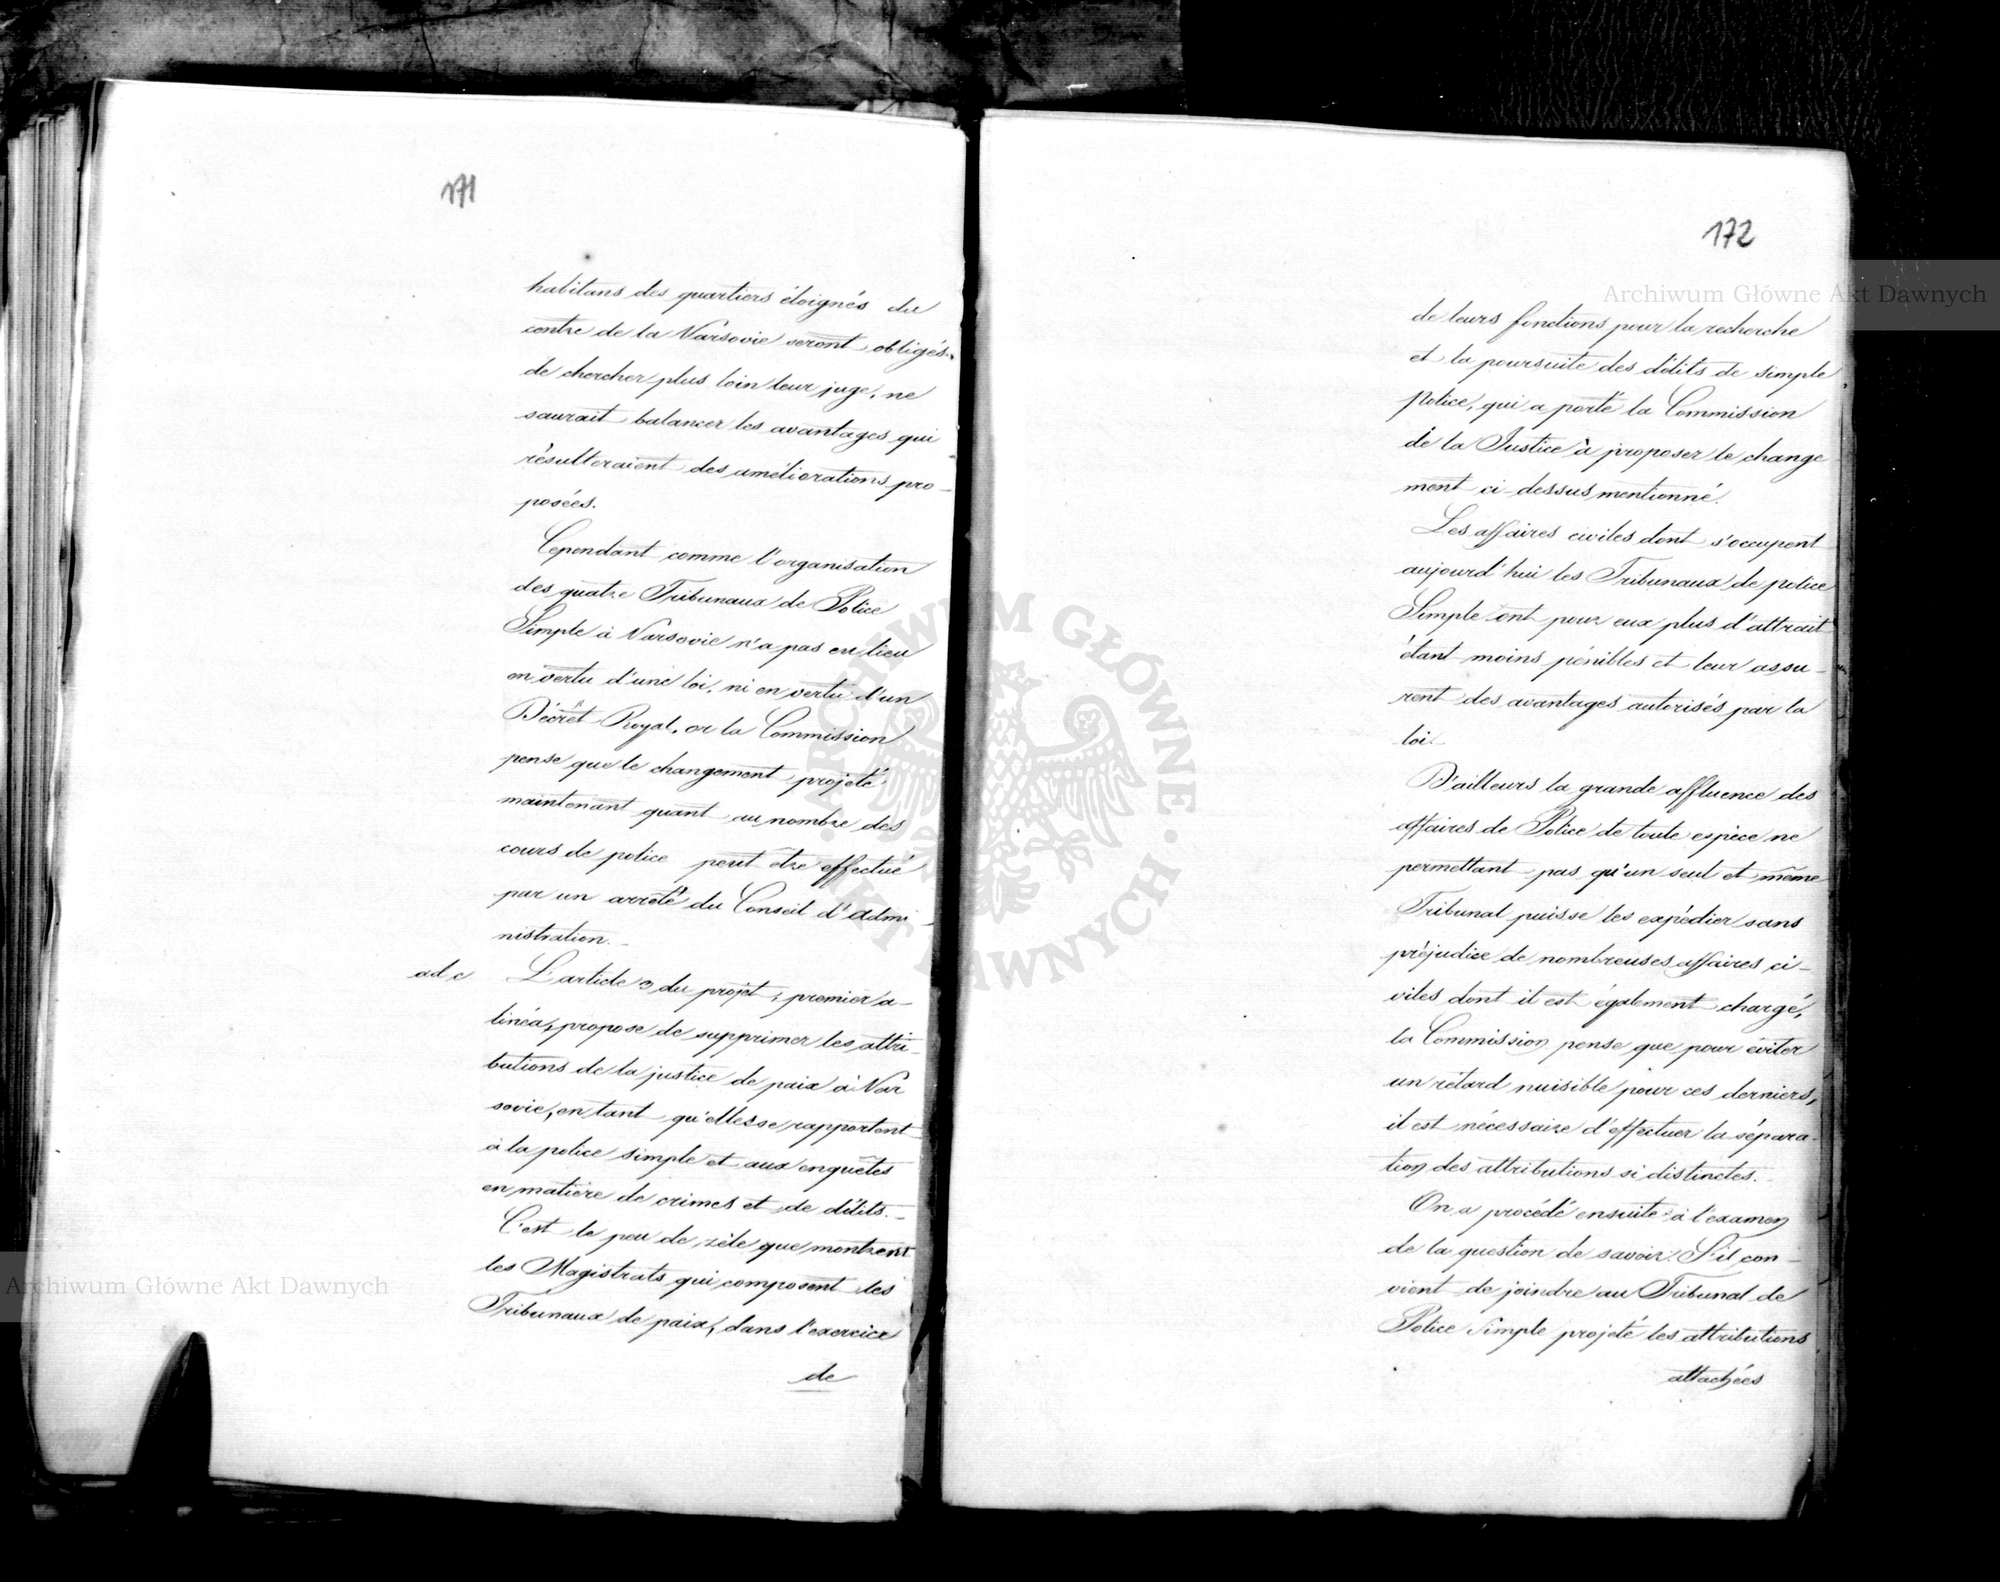 171
habitans des quartiers éloignés du
centre de la Varsovie seront obligés
de chercher plus loin leur juge, ne
saurait balancer les avantages qui
résulteraient des améliorations pro-
posées.
Cependant comme l'organisation
des quatre Tribunaux de Police
Simple à Varsovie n'a pas eu lieu
en vertu d'une loi, ni en vertu d'un
Décret Royal, or la Commission
pense que le changement projeté
maintenant quant au nombre des
cours de police peut être effectué
par un arrêté du Conseil d'admi-
nistration.
ad c L'article 3 du projet, premier a-
linéa, propose de supprimer les attri-
butions de la justice de paix à Var
sovie, en tant qu'elles se rapportent
à la police simple et aux enquêtes
en matière de crimes et de délits.
C'est le peu de zèle que montrent
les Magistrats qui composent les
Tribunaux de paix, dans l'exercice
de
172
de leurs fonctions pour la recherche
et la poursuite des délits de simple
police, qui a porté la Commission
de la Justice à proposer le change
ment ci-dessus mentionné.
Les affaires civiles dont s'occupent
aujourd'hui les Tribunaux de police
Simple ont pour eux plus d'attrait
étant moins pénibles et leur assu-
rent des avantages autorisés par la
loi.
D'ailleurs la grande affluence des
affaires de Police de toute espèce ne
permettant pas qu'un seul et même
Tribunal puisse les expédier sans
préjudice de nombreuses affaires ci-
viles dont il est également chargé,
la Commission pense que pour éviter
un rétard nuisible pour ces derniers,
il est nécessaire d'effectuer la sépara-
tion des attributions si distinctes.
On a procédé ensuite à l'examen
de la question de savoir: S'il con-
vient de joindre au Tribunal de
Police Simple projeté les attributions
attachées
Archiwum Główne Akt Dawnych
Archiwum Główne Akt Dawnych
ARCHIWUM GŁÓWNE · AKT DAWNYCH ·